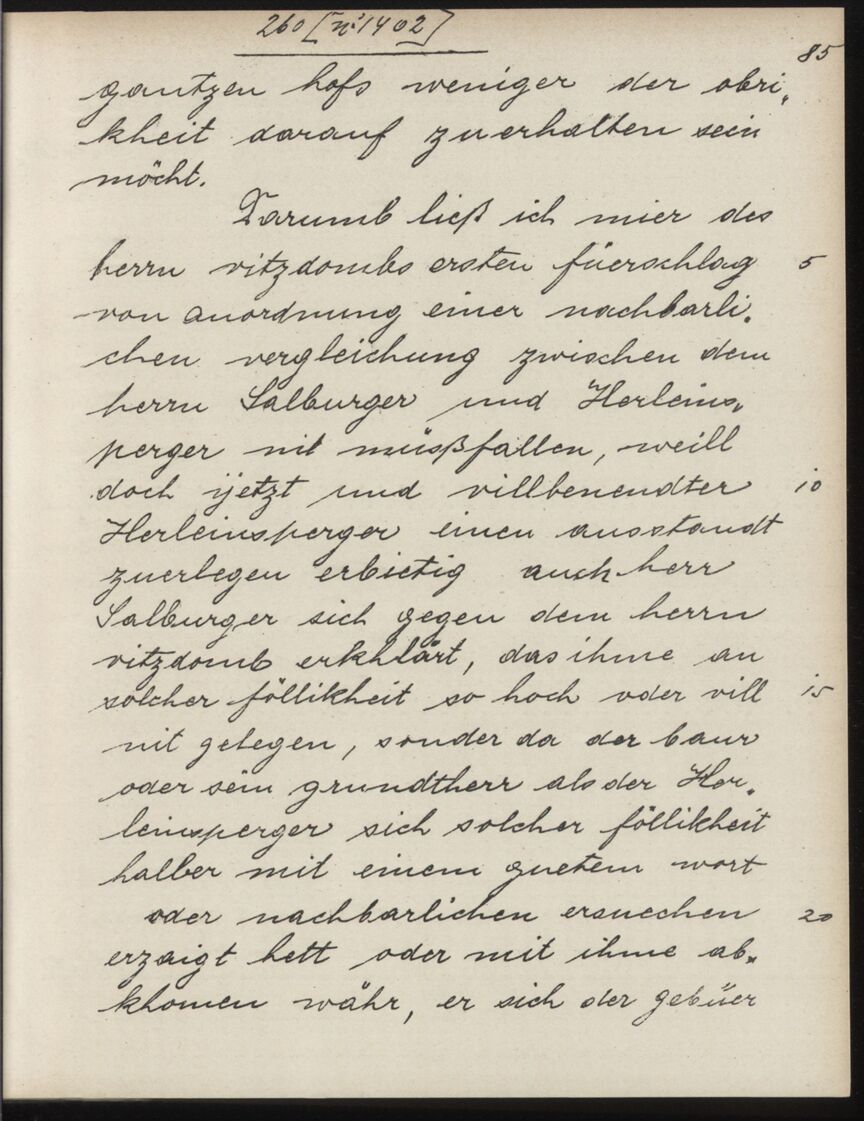 260 [nº 1402]
85
gantzen hofs weniger der obri„
kheit darauf zuerhalten sein
möcht.
Darumb ließ ich mier des
herrn vitzdombs ersten füerschlag 5
von anordnung einer nachbarli„
chen vergleichung zwischen dem
herrn Salburger und Herleins„
perger nit müsßfallen, weill
doch ijetzt und villbenendter 10
Herleinsperger einen ausstandt
zuerlegen erbietig auch herr
Salburger sich gegen dem herrn
vitzdomb erkhlärt, das ihme an
solcher föllikheit so hoch oder vill 15
nit gelegen, sonder da der baur
oder sein grundtherr als der Her„
leinsperger sich solcher föllikheit
halber mit einem guetem wort
oder nachbarlichen ersuechen 20
erzaigt hett oder mit ihme ab„
khomen währ, er sich der gebüer